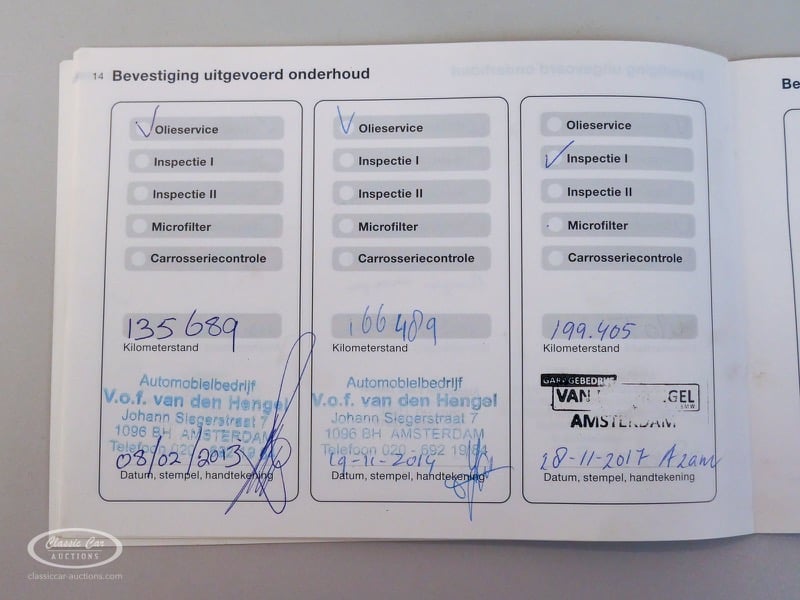 14 Bevestiging uitgevoerd onderhoud
Olieservice
Inspectie I
Inspectie II
Microfilter
Carrosseriecontrole
135689
Kilometerstand
Automobielbedrijf
V.o.f. van den Hengel
Johann Siegerstraat 7
1096 BH AMSTERDAM
Telefoon 020
08/02/2013
Datum, stempel, handtekening
Olieservice
Inspectie I
Inspectie II
Microfilter
Carrosseriecontrole
166489
Kilometerstand
Automobielbedrijf
V.o.f. van den Hengel
Johann Siegerstraat 7
1096 BH AMSTERDAM
Telefoon 020 - 692 19
19-11-2014
Datum, stempel, handtekening
Olieservice
Inspectie I
Inspectie II
Microfilter
Carrosseriecontrole
199.405
Kilometerstand
VAN
AMSTERDAM
28-11-2017 Azam
Datum, stempel, handtekening
Be
Classic Car
AUCTIONS
classiccar-auctions.com